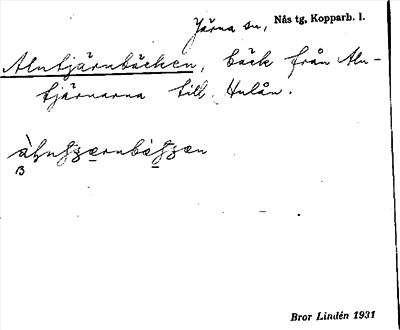 Järna sn, Nås tg, Kopparb. l.
Alntjärnbäcken, bäck från Aln-
tjärnarna till Hulån.
Bror Lindén 1931